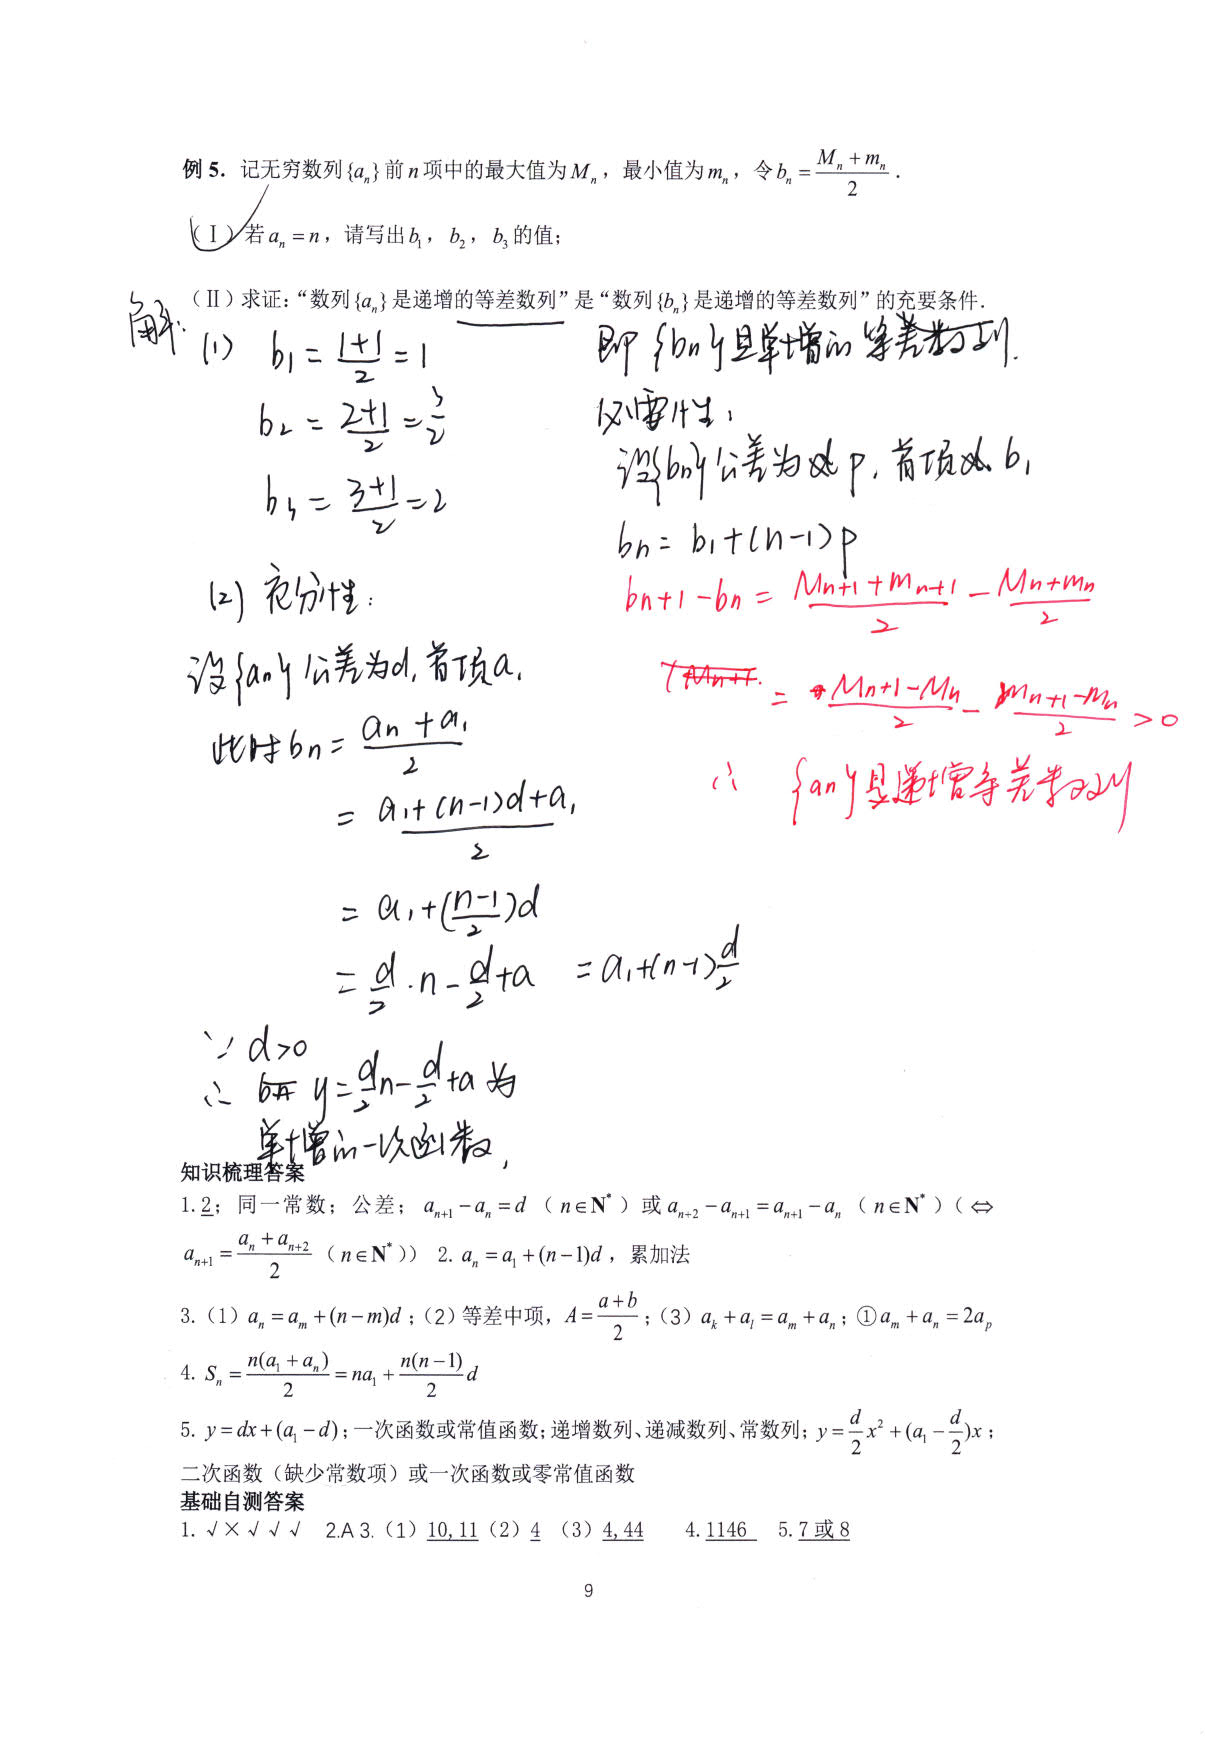 例 5. 记无穷数列{aₙ}前n项中的最大值为Mₙ，最小值为mₙ，令bₙ = (Mₙ + mₙ)/2.
（Ⅰ）若aₙ = n，请写出b₁，b₂，b₃的值；
（Ⅱ）求证：“数列{aₙ}是递增的等差数列”是“数列{bₙ}是递增的等差数列”的充要条件.
解：
(1) b₁ = (1+1)/2 = 1
b₂ = (2+1)/2 = 3/2
b₃ = (3+1)/2 = 2
(2) 充分性：
设{an}公差为d, 首项a,
此时bn = (an + a₁)/2
= (a₁+(n-1)d+a₁)/2
= a₁+((n-1)/2)d
= d/2·n - d/2 + a = a₁+(n-1)d/2
∵ d>0
∴ y = d/2 n - d/2 + a 为
单增的一次函数,
即{bn}且单增的等差数列.
必要性：
设{bn}公差为p, 首项b₁
bn = b₁+(n-1)p
bn+1 - bn = (Mn+1 + mn+1)/2 - (Mn+mn)/2
= (Mn+1 - Mn)/2 - (mn+1 - mn)/2 > 0
∴ {an}是递增等差数列
知识梳理答案
1. 2；同一常数；公差；aₙ₊₁ − aₙ = d （n∈N*）或aₙ₊₂ − aₙ₊₁ = aₙ₊₁ − aₙ （n∈N*）(⇔
aₙ₊₁ = (aₙ + aₙ₊₂)/2 （n∈N*）） 2. aₙ = a₁ + (n−1)d，累加法
3.（1）aₙ = aₘ + (n−m)d；（2）等差中项，A = (a+b)/2；（3）aₖ + aₗ = aₘ + aₙ；①aₘ + aₙ = 2aₚ
4. Sₙ = n(a₁ + aₙ)/2 = na₁ + n(n−1)/2 d
5. y = dx + (a₁ − d)；一次函数或常值函数；递增数列、递减数列、常数列；y = d/2 x² + (a₁ − d/2)x；
二次函数（缺少常数项）或一次函数或零常值函数
基础自测答案
1. √×√√√ 2.A 3.（1）10, 11（2）4 （3）4, 44 4. 1146 5. 7 或 8
9